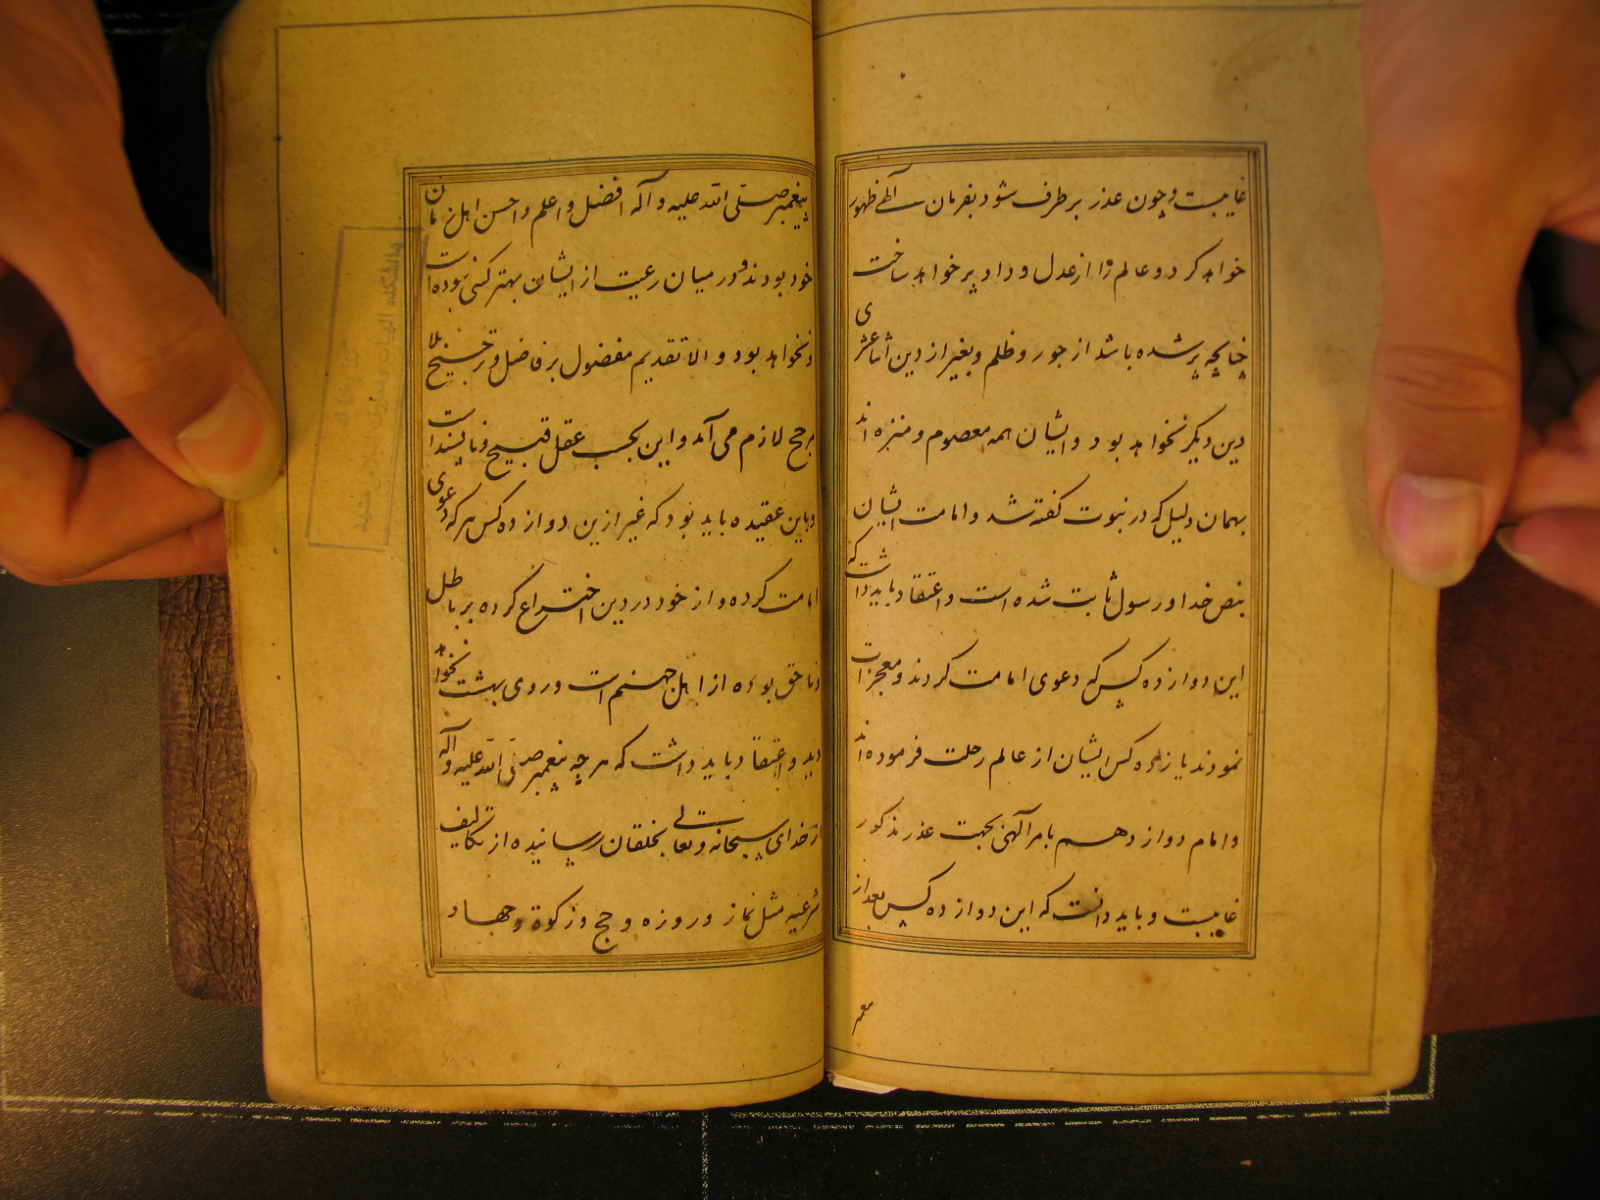 غایبست و چون عذر بر طرف شود بفرمان آلهی ظهور
خواهد کرد و عالم را از عدل و داد پر خواهد ساخت
چنانچه پر شده باشد از جور و ظلم و بغیر از دین اثنا عشری
دین دیگر نخواهد بود و ایشان همه معصوم و منزه اند
بهمان دلیل که در نبوت گفته شد و امامت ایشان
بنص خدا و رسول ثابت شده است و اعتقاد باید داشت که
این دوازده کس که دعوی امامت کردند و معجزات
نمودند یازده کس ایشان از عالم رحلت فرموده اند
و امام دوازدهم بامر الهی بجهت عذر مذکور
غایبست و باید دانست که این دوازده کس بعد از
پیغمبر
پیغمبر صلّی اللّه علیه و آله افضل و اعلم و احسن اهل زمان
خود بودند و در میان رعیت از ایشان بهتر کسی نبوده است
و نخواهد بود و الا تقدیم مفضول بر فاضل و ترجیح بلا
مرجح لازم می آید و این بحسب عقل قبیح و ناپسند است
و باین عقیده باید بود که غیر ازین دوازده کس هر که دعوی
امامت کرده و از خود در دین اختراع کرده بر باطل
و ناحق بوده از اهل جهنم است و روی بهشت نخواهد
دید و اعتقاد باید داشت که هر چه پیغمبر صلّی اللّه علیه و آله
از خدای سبحانه و تعالی بخلقان رسانیده از تکالیف
شرعیه مثل نماز و روزه و حج و زکوة و جهاد
دانشکده الهیات و معارف اسلامی مشهد